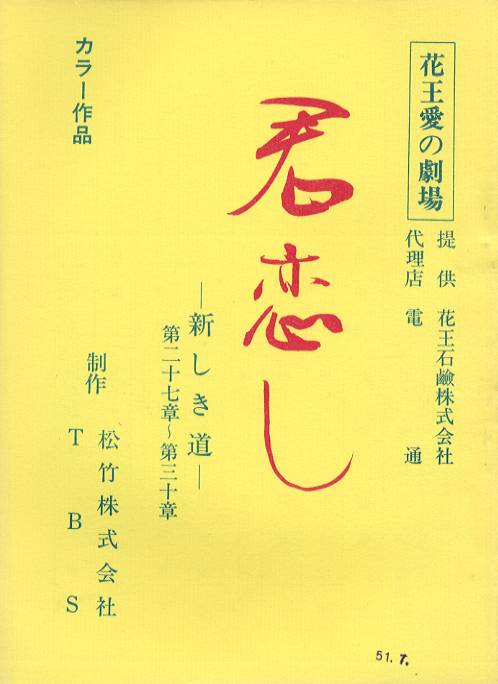 花王愛の劇場
提供 花王石鹸株式会社
代理店 電通
君恋し
―新しき道―
第二十七章~第三十章
制作 松竹株式会社
TBS
カラー作品
51.7.